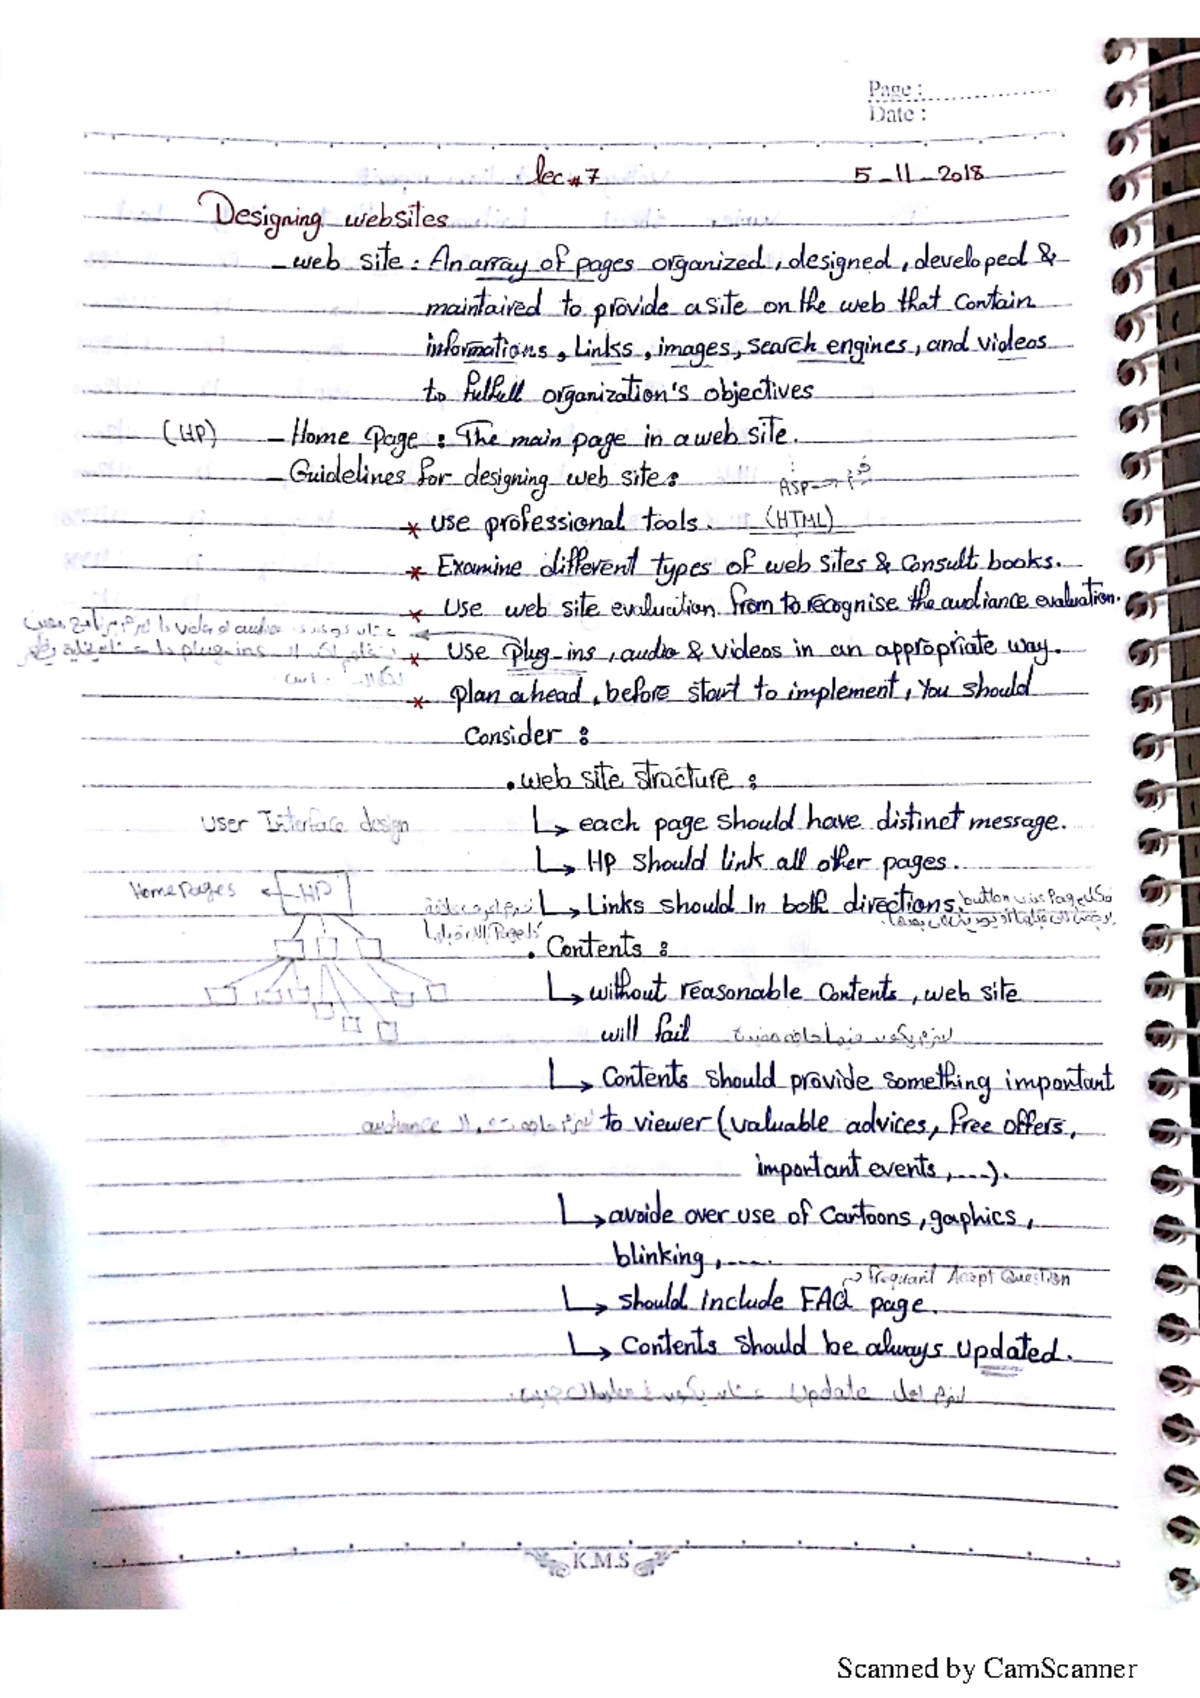 Page :
Date :
lec # 7 5-11-2018
Designing websites
- web site : An array of pages organized, designed, developed &
maintaired to provide a site on the web that contain
informations, Links, images, search engines, and videos
to fulfell organization's objectives
(HP) - Home Page : The main page in a web site.
- Guidelines for designing web site :
ASP
* use professional tools. (HTML)
* Examine different types of web sites & Consult books.
* Use web site evaluation from to recognise the audiance evaluation.
* Use Plug-ins, audio & videos in an appropriate way.
* plan ahead, before start to implement, You should
Consider :
. web site structure :
User Interface design ↳ each page should have distinct message.
↳ HP should link all other pages.
Homepages ← HP
↳ Links should in both directions.
. Contents :
↳ without reasonable Contents, web site
will fail
↳ Contents should provide something important
audiance to viewer (valuable advices, free offers,
important events, ....).
↳ avoide over use of Cartoons, gaphics,
blinking, ....
→ frequant Acept Question
↳ should include FAQ page.
↳ Contents should be always updated.
لازم اعمل Update عشان يكون في معلومات جديدة.
K.M.S
Scanned by CamScanner